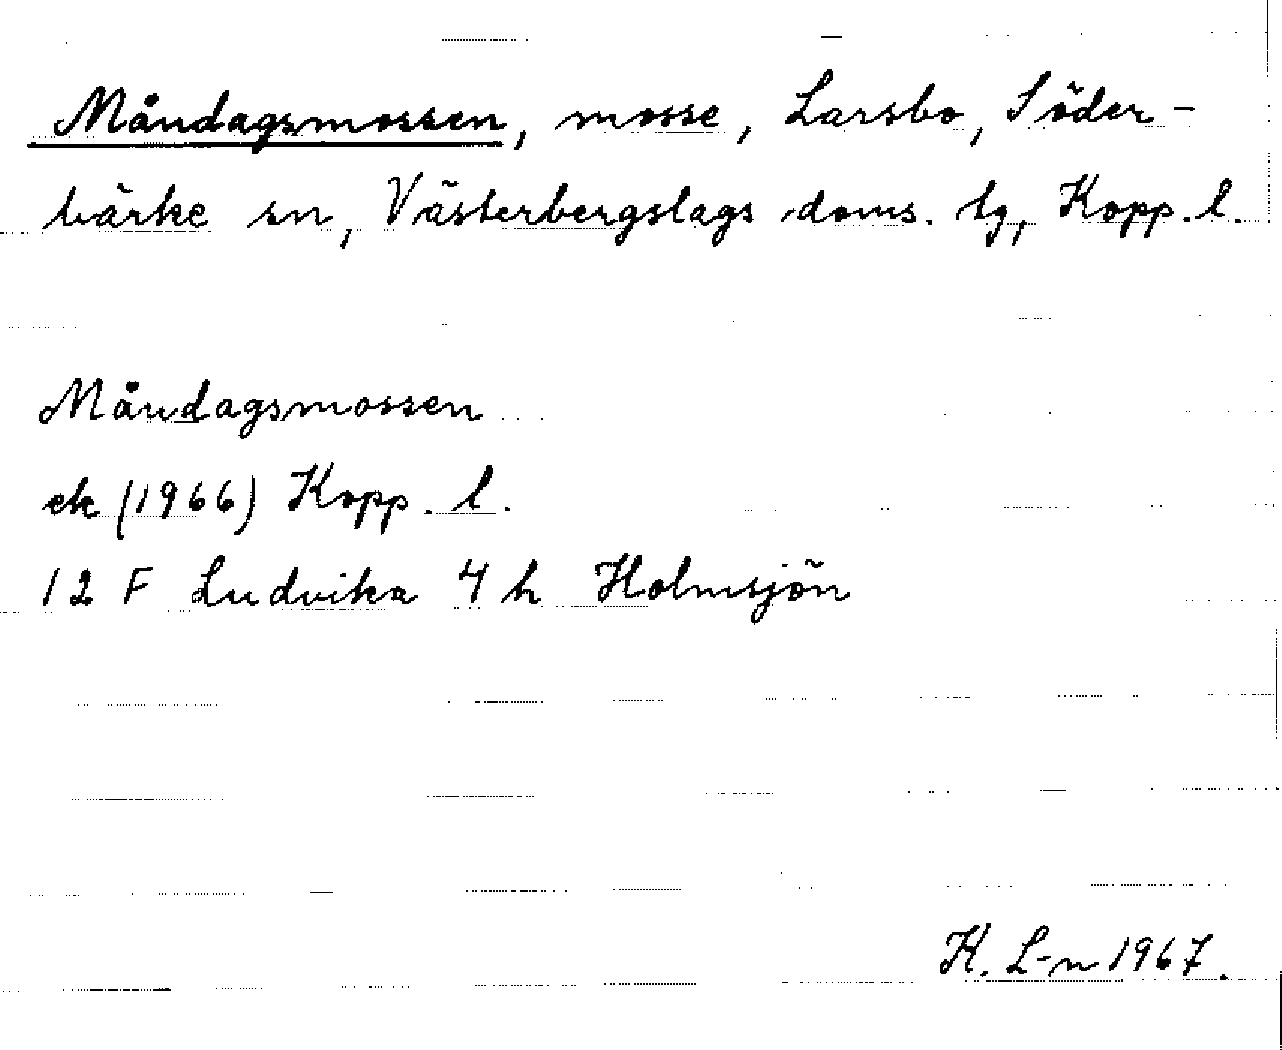 Måndagsmossen, mosse, Larsbo, Söder-
bärke sn, Västerbergslags doms. tg, Kopp. l.
Måndagsmossen
ek (1966) Kopp. l.
12 F Ludvika 4 h Holmsjön
K. L-n 1967.